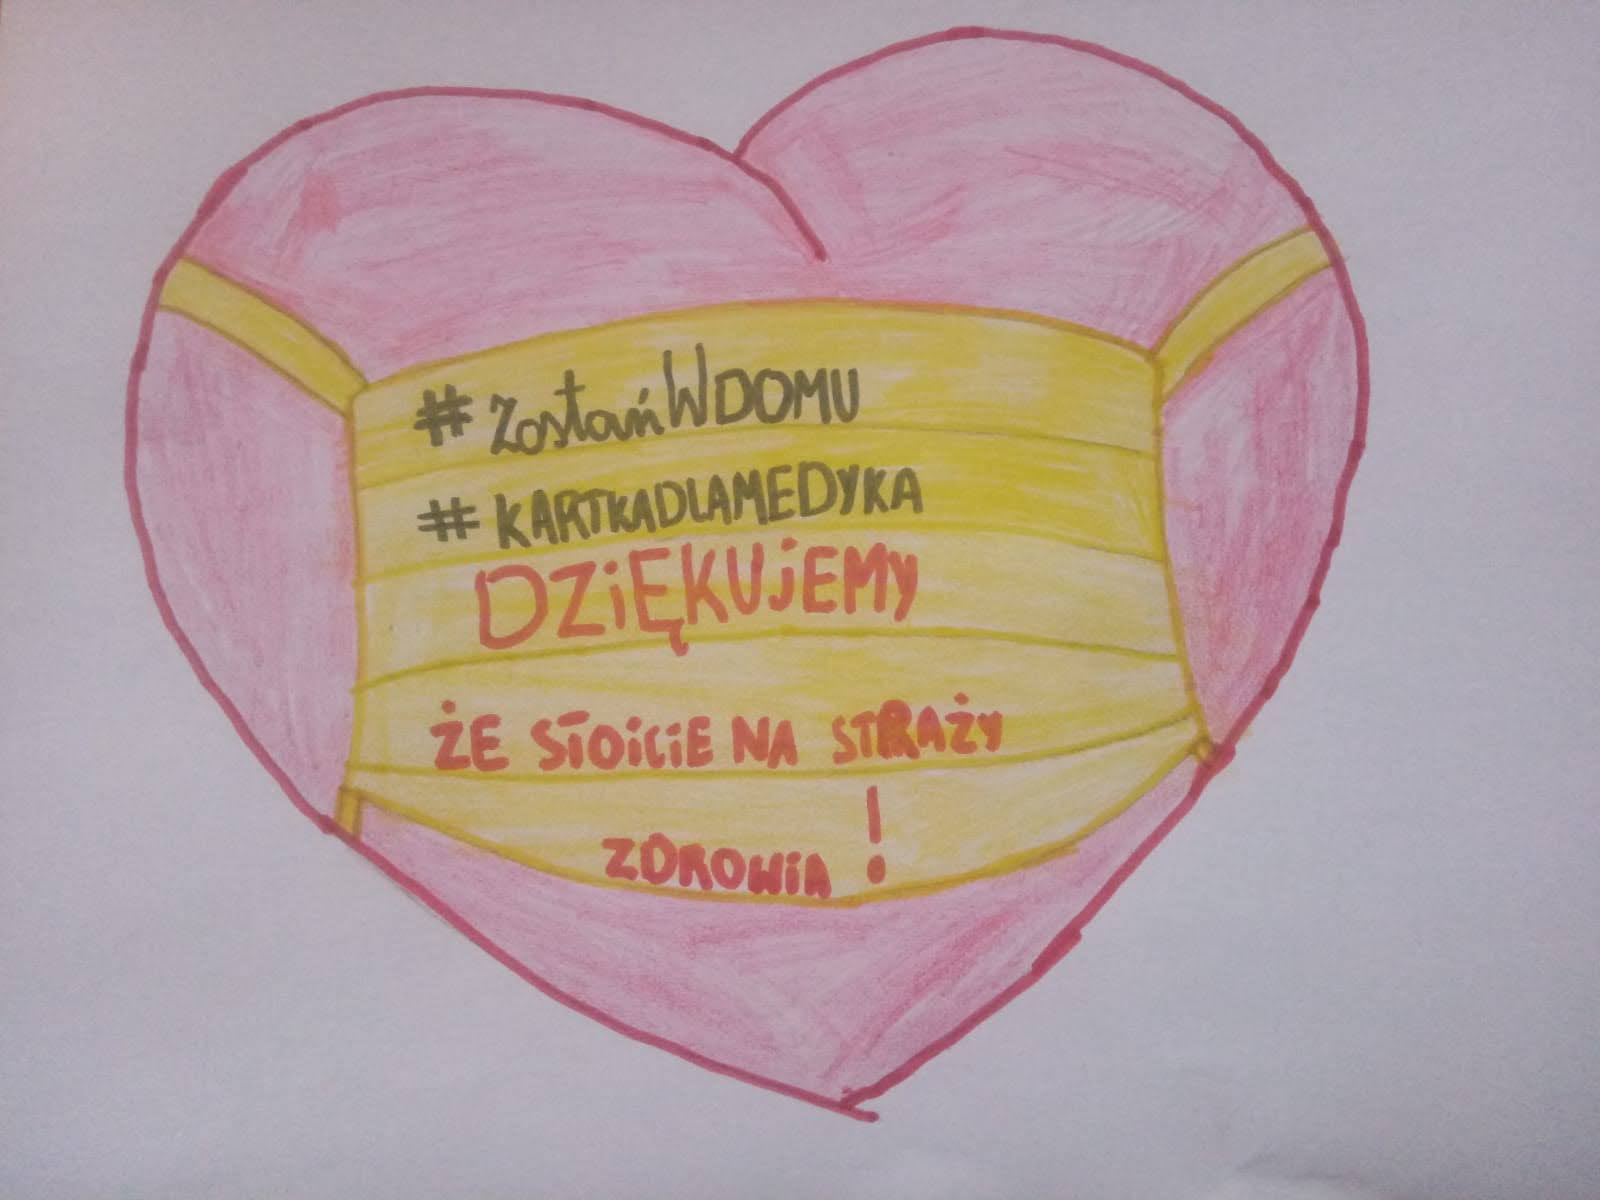 #ZostańWDOMU
#KARTKADLAMEDYKA
DZiĘKUjEMY
ŻE STOiCiE NA STRAŻY
ZDROWiA!